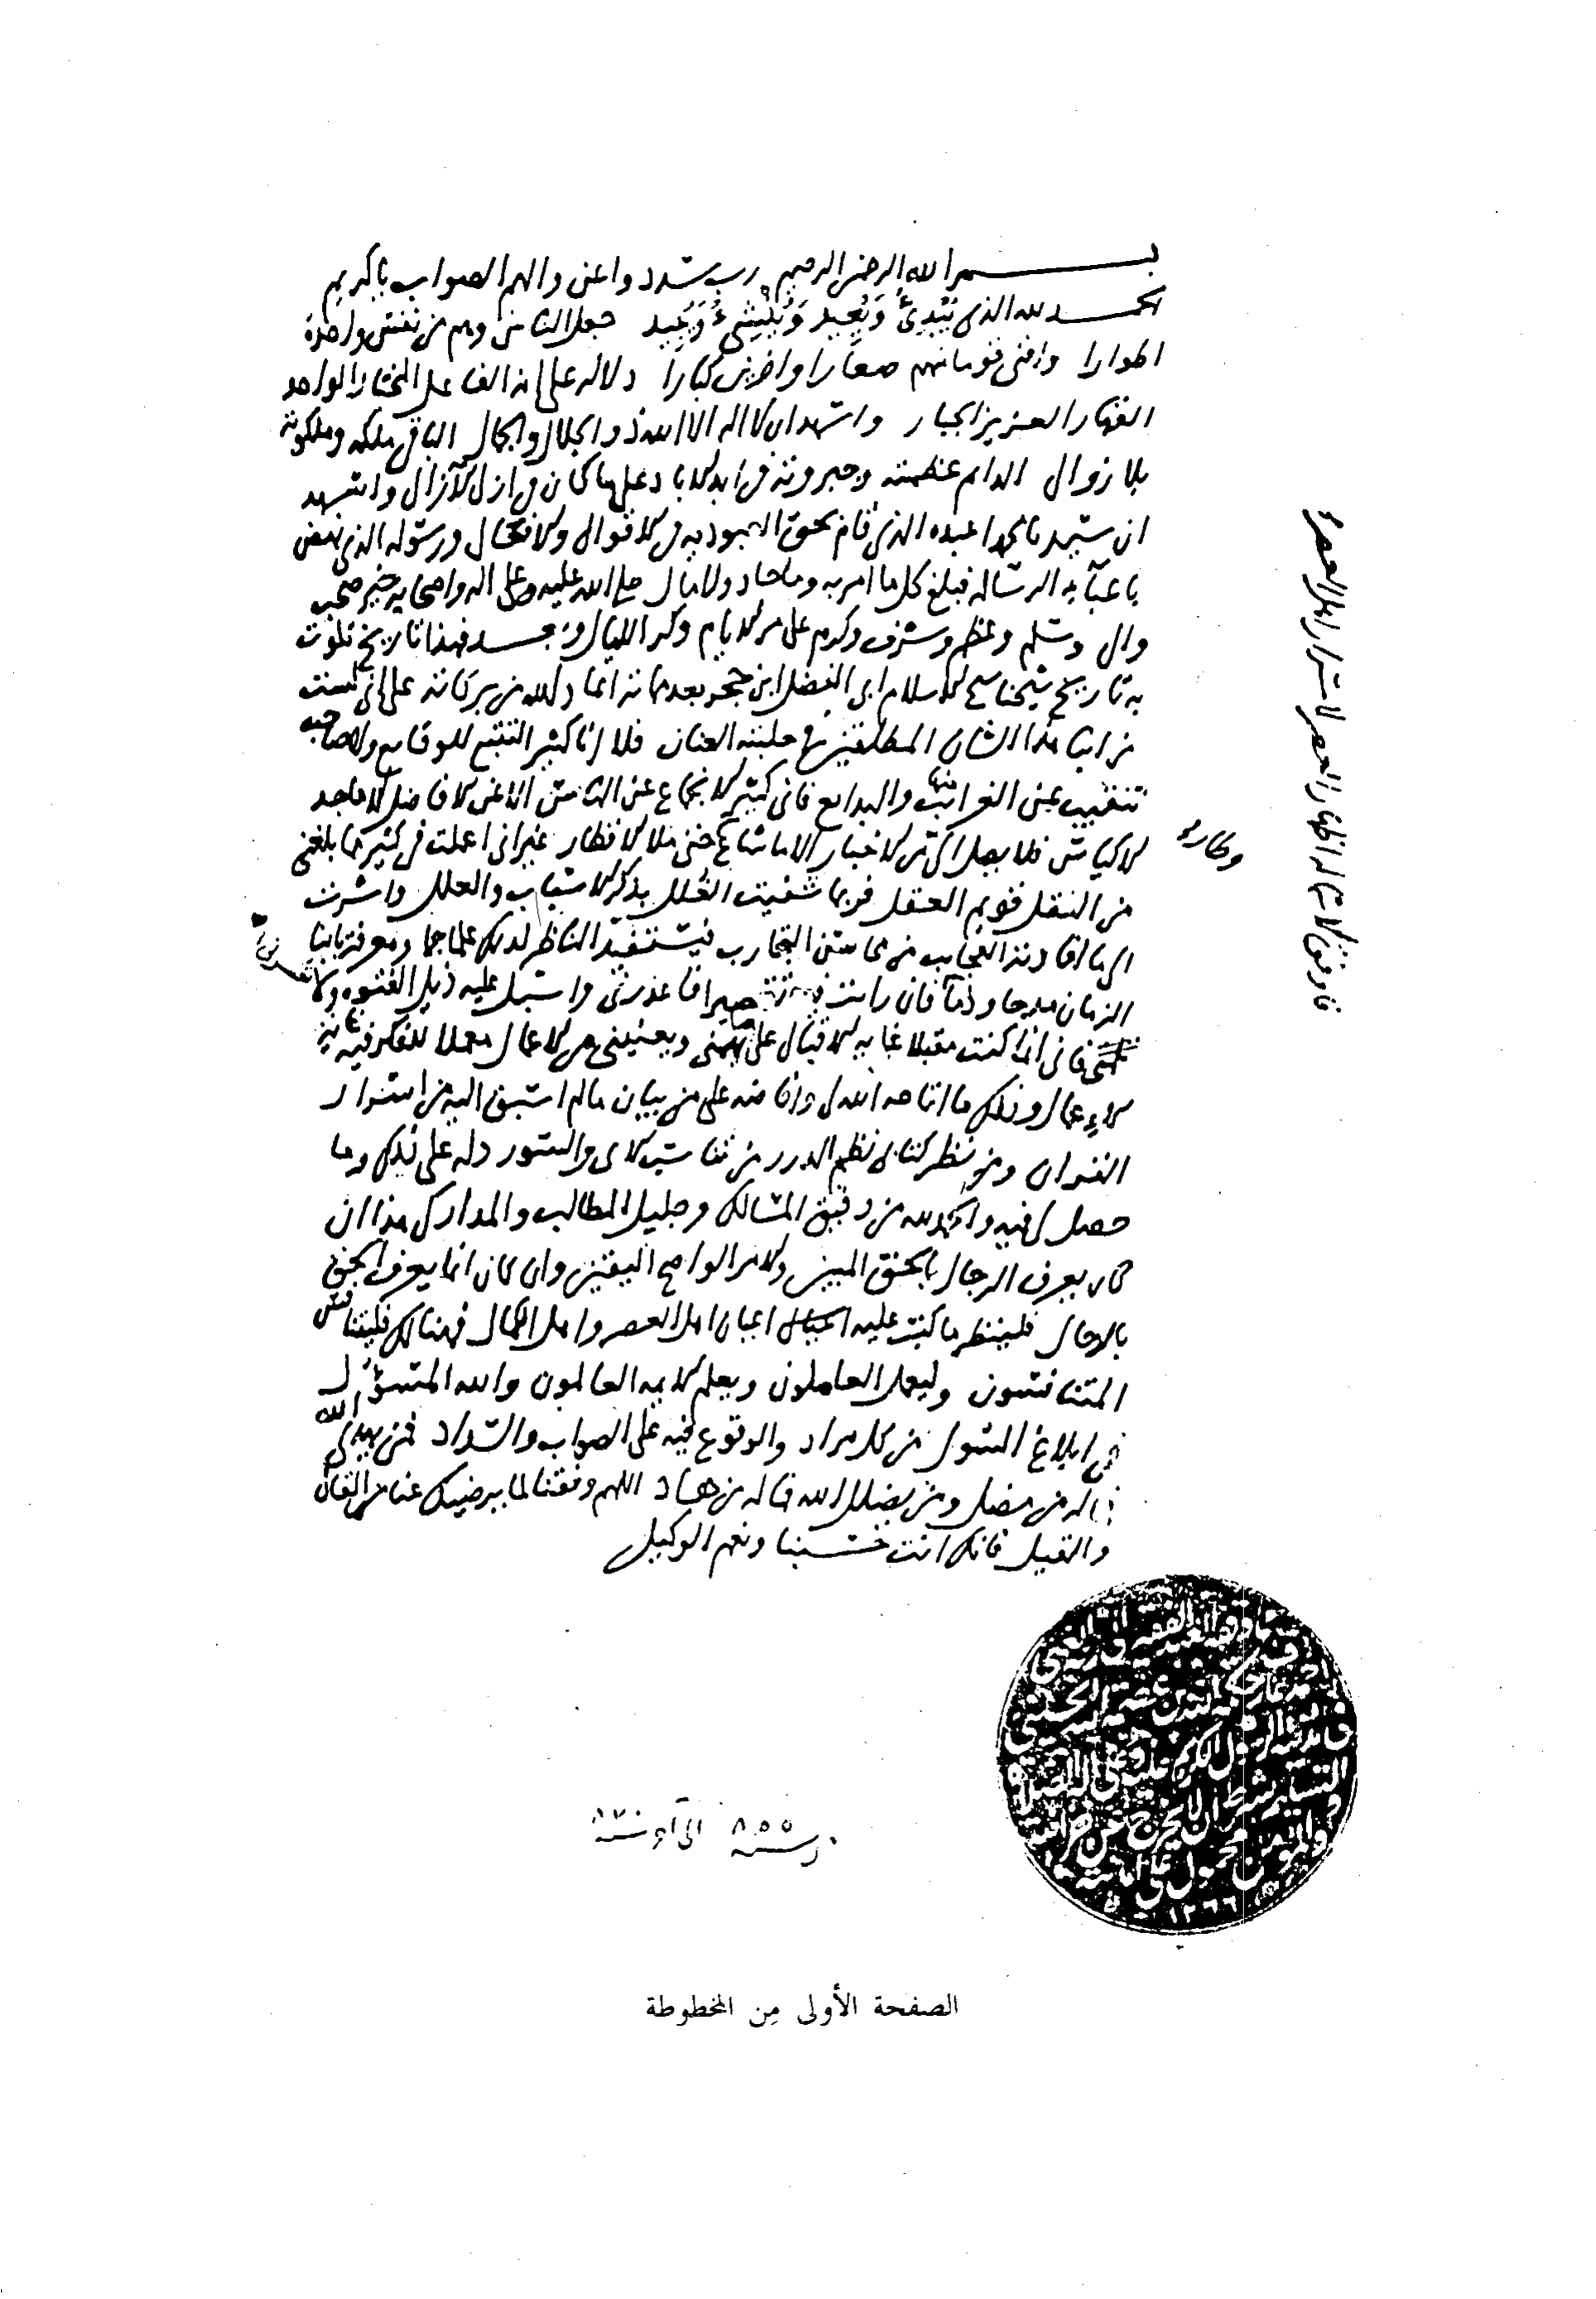 بسم الله الرحمن الرحيم رب سدد واعن والهم الصواب ياكريم
الحمد لله الذي يُبْدِئُ وَيُعِيد وَيُنْشِئُ وَيُبِيد جعل الناس وهم من نفس واحدة
اطوارا وافنى قوما منهم صغارا واخرين كبارا دلاله على انه الفاعل المختار الواحد
القهار العزيز الجبار واشهد ان لا اله الا الله ذو الجلال والجمال الباقي ملكه وملكوته
بلا زوال الدايم عظمته وجبروته في ابد الاباد على ما كان في ازل الآزال واشهد
ان سيدنا محمدا عبده الذي قام بحق العبوديه في الاقوال والافعال ورسوله الذي نهض
باعبآء الرساله فبلغ كل ما امر به وما حاد ولا مال صلى الله عليه وعلى اله واصحابه خير صحب
وال وسلم وعظم وشرف وكرم على مر الايام وكر الليالي وبعد فهذا تاريخ تلوت
به تاريخ شيخنا شيخ الاسلام ابي الفضل ابن حجر بعد مماته اعاد الله من بركاته على اني لست
من ابنا هذا الشان المطلقين في حلبته العنان فلا انا كثير التتبع للوقايع ولا صاحب
تنقيب عن الغرائب والبدايع فاني كثير الانجماع عن الناس الا عن الافاضل الاماجد
الاكياس فلا يصل الي من الاخبار الا ما شاع حتى ملا الاقطار غير اني اعملت في كثير مما بلغني
من النقل قويم العقل فربما شفيت الغلل بذكر الاسباب والعلل واشرت
الى ما افادته العجايب من محاسن التجارب فيستفيد الناظر لذلك علما جما ومعرفة بابنا
الزمان مدحا وذما فان رايت فاعذرني واسبل عليه ذيل الفتوه ولا
فاني انما كنت مقبلا غايه الاقبال على ما يهمني ويعنيني من الاعمال معملا للفكر فيه
الاعمال وذلك ما اتاحه الله لي وافاضه علي من بيان ما لم اسبق اليه من اسرار
القران ومن نظر كتابي نظم الدرر من تناسب الاي والسور دله على ذلك وما
حصل لي فيه والحمد لله من دقيق المسالك وجليل المطالب والمدارك هذا ان
كان يعرف الرجال بالحق المبين والامر الواضح اليقين وان كان انما يعرف الحق
بالرجال فلينظر ما كتبت عليه اعيان اهل العصر واهل الكمال فهنالك فليتنافس
المتنافسون وليعمل العاملون ويعلم العالمون والله المسؤل
في ابلاغ السول من كل مراد والوقوع فيه على الصواب والسداد فمن يهدي الله
فما له من مضل ومن يضلل الله فما له من هاد اللهم وفقنا لما يرضيك عنا من القال
والقيل فانك انت حسبنا ونعم الوكيل
من سنه ٨٥٥ الى آخر سنه
١٢٦٦
الصفحة الأولى مِن المخطوطة